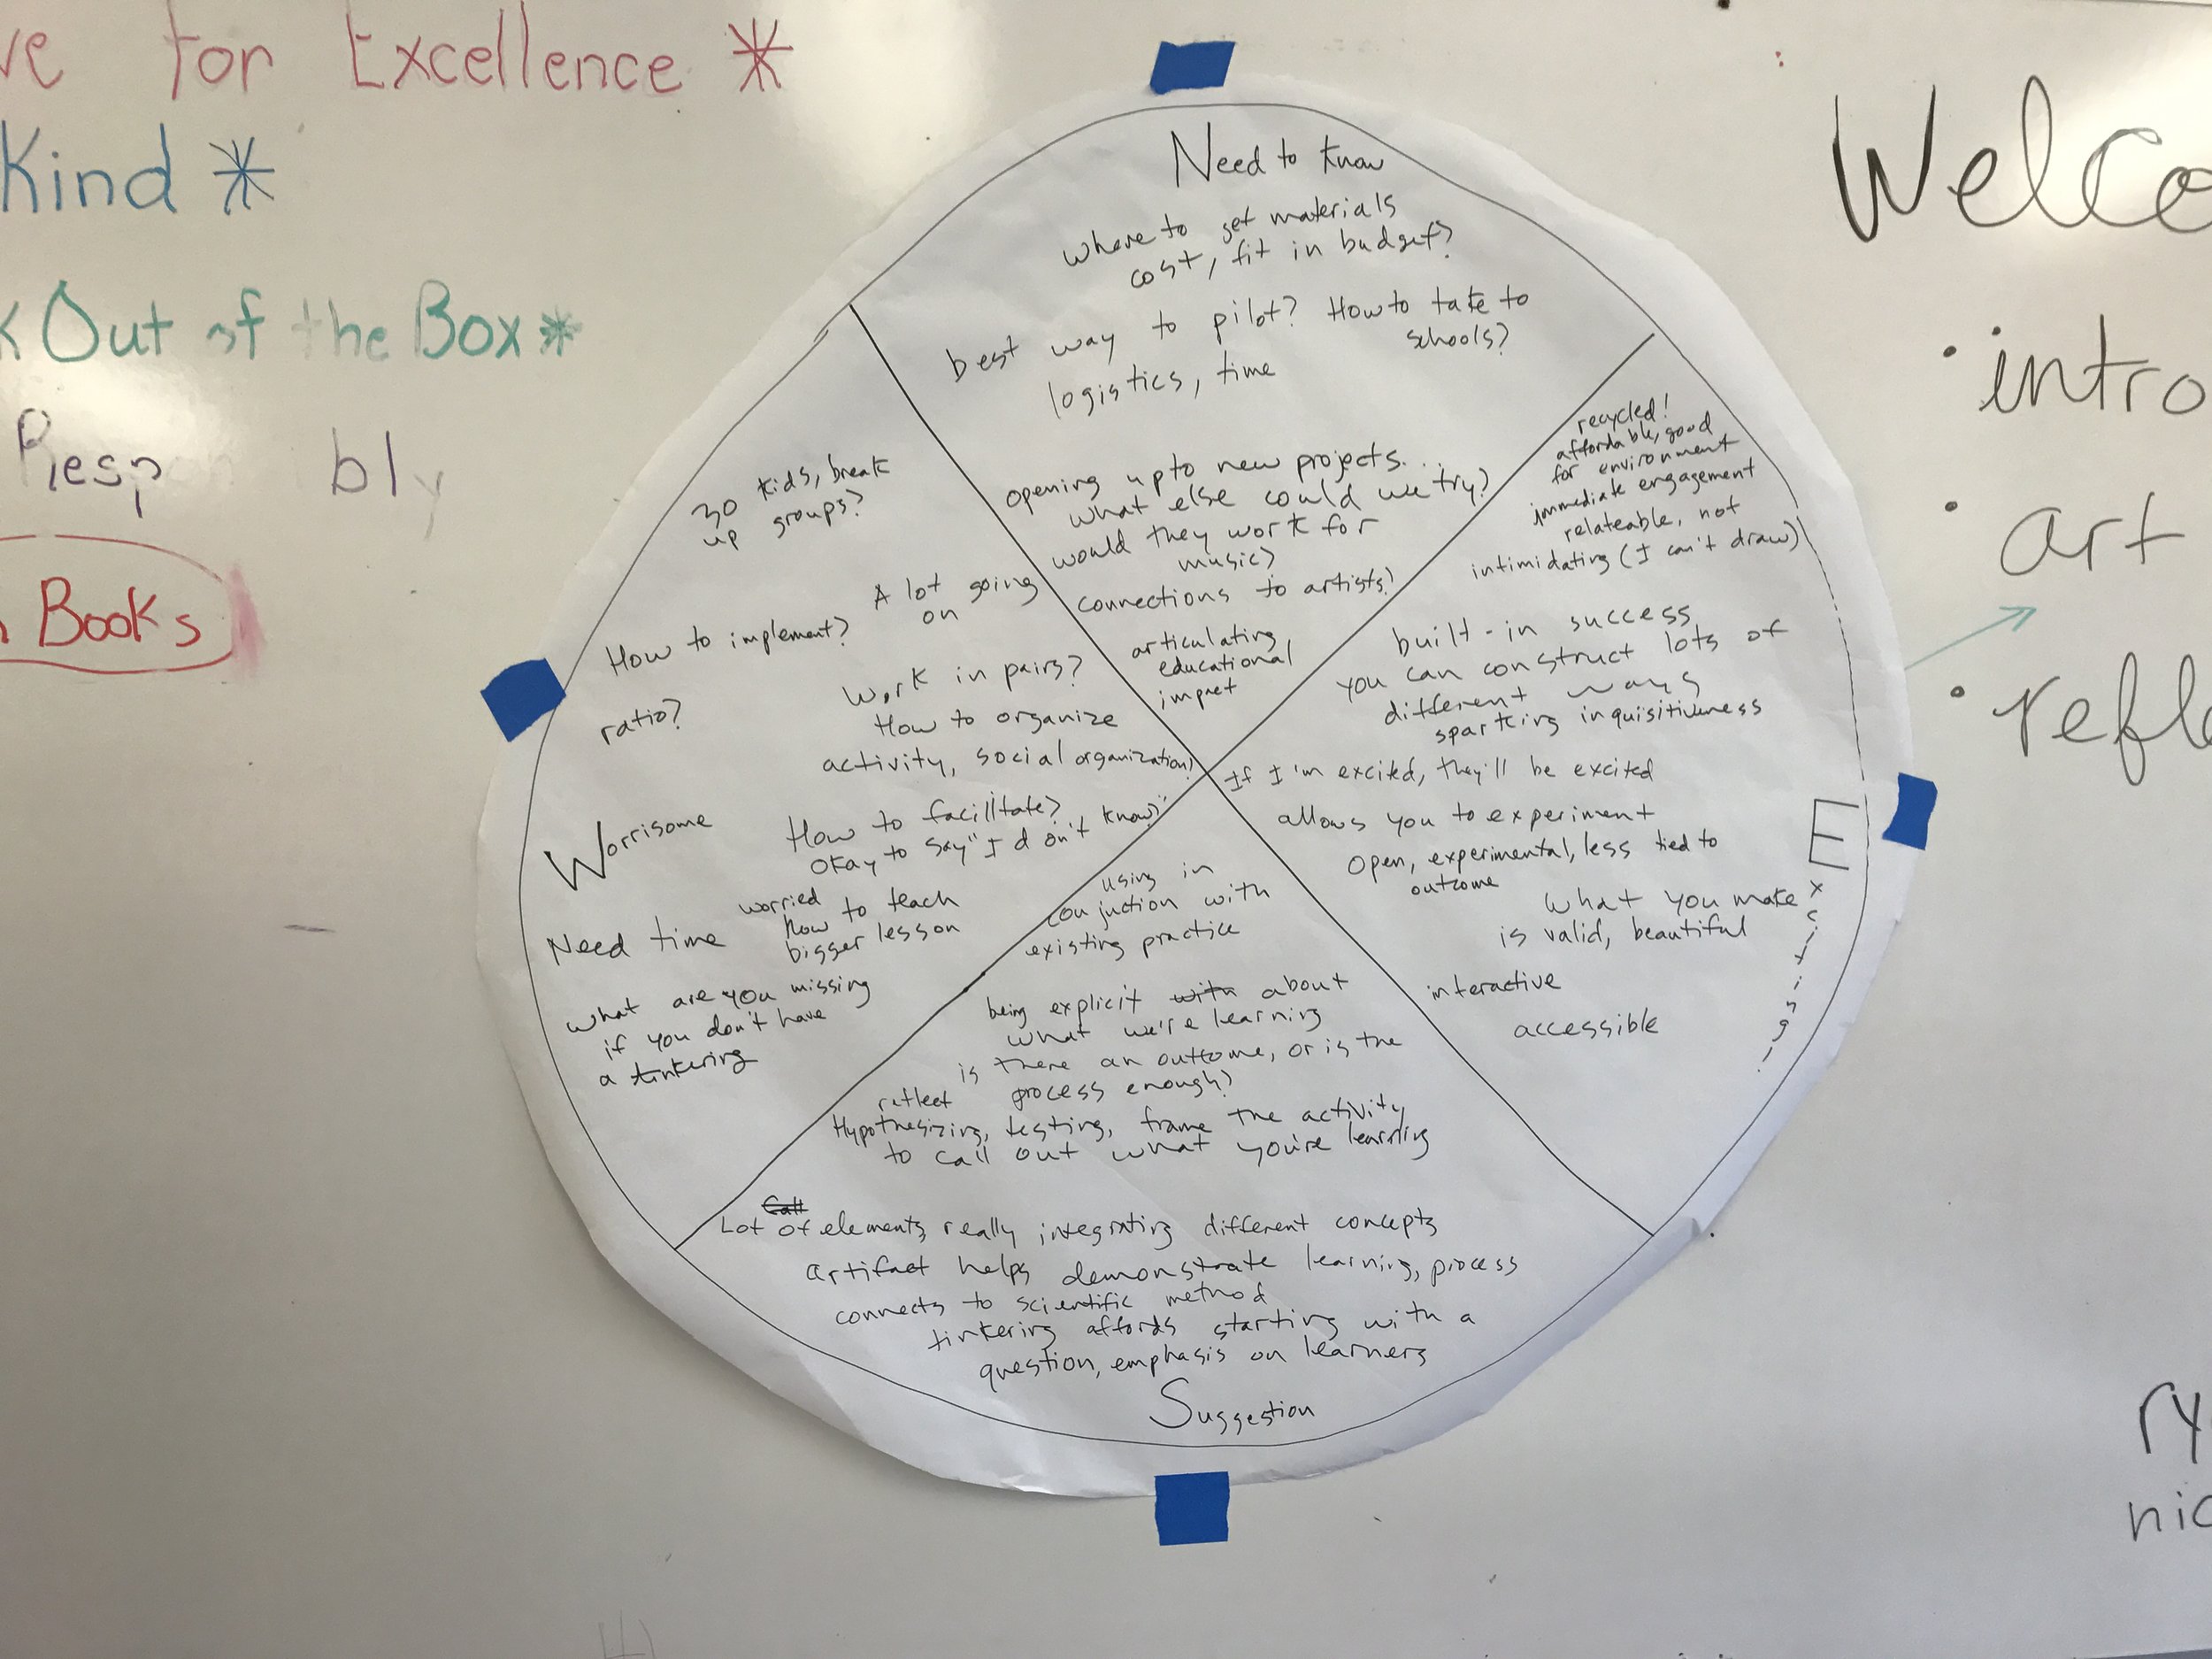 ve for Excellence *
Kind *
k Out of the Box *
Resp bly
Books
Need to know
where to get materials
cost, fit in budget?
best way to pilot? How to take to
schools?
logistics, time
opening up to new projects...
what else could we try?
would they work for
music?
connections to artists?
articulating
educational
impact
recycled!
affordable, good
for environment
immediate engagement
relateable, not
intimidating (I can't draw)
built-in success
you can construct lots of
different ways
sparking inquisitiveness
If I'm excited, they'll be excited
allows you to experiment
open, experimental, less tied to
outcome
what you make
is valid, beautiful
interactive
accessible
Exciting!
30 kids, break
up groups?
A lot going
on
How to implement?
Work in pairs?
ratio?
How to organize
activity, social organization?
Worrisome
How to facilitate?
okay to say "I don't know?"
worried
how to teach
bigger lesson
Need time
what are you missing
if you don't have
a tinkering
using in
conjuction with
existing practice
being explicit with about
what we're learning
is there an outcome, or is the
process enough?
reflect
Hypothesizing, testing, frame the activity
to call out what you're learning
Call
Lot of elements, really integrating different concepts
artifact helps demonstrate learning, process
connects to scientific method
tinkering affords starting with a
question, emphasis on learners
Suggestion
Welco
• intro
• art
• refl
ry
nic